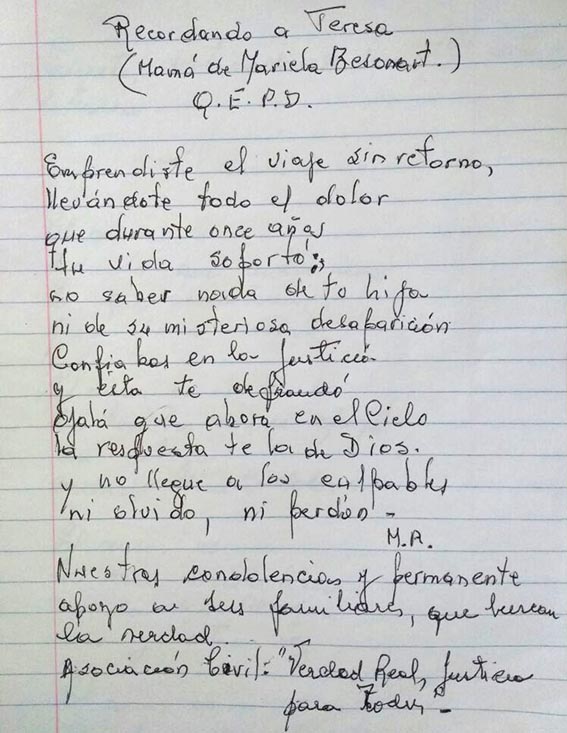 Recordando a Teresa
(Mamá de Mariela Besonart.)
Q.E.P.D.
Emprendiste el viaje sin retorno,
llevándote todo el dolor
que durante once años
tu vida soportó:
no saber nada de tu hija
ni de su misteriosa desaparición
Confiabas en la justicia
y ésta te defraudó
Ojalá que ahora en el Cielo
la respuesta te la de Dios.
y no llegue a los culpables
ni olvido, ni perdón -
M.A.
Nuestras condolencias y permanente
apoyo a sus familiares, que buscan
la verdad.
Asociación Civil: "Verdad Real, Justicia
para Todos" -